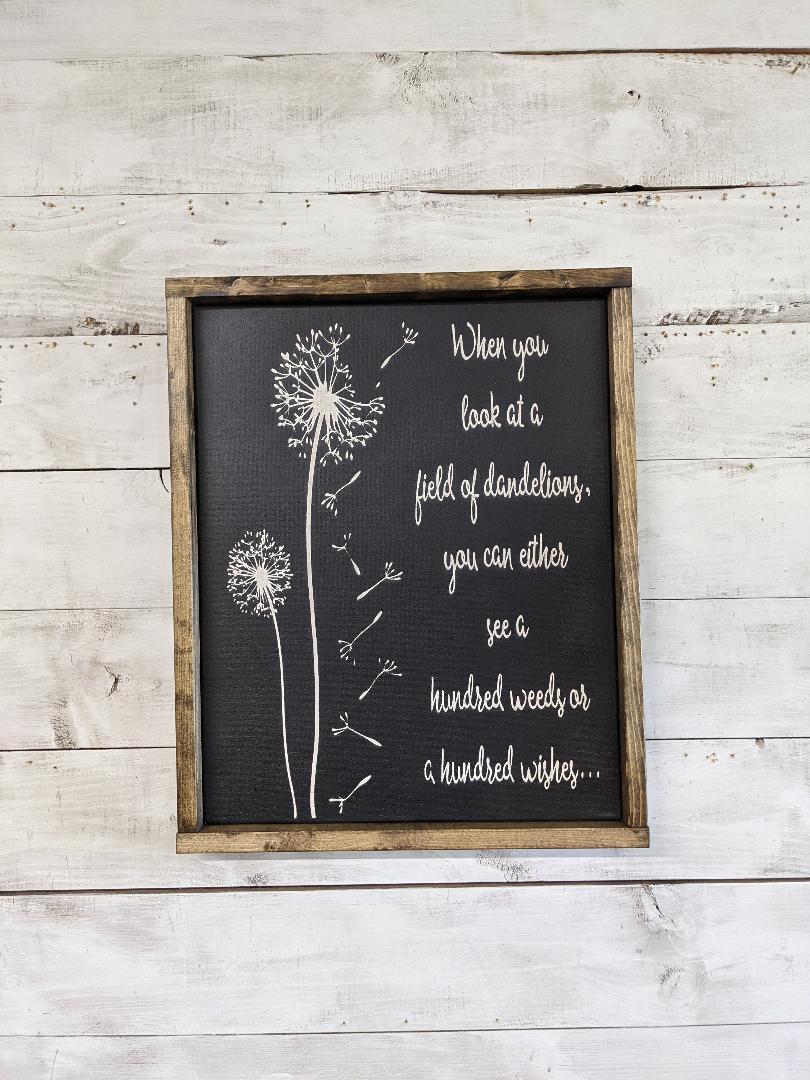 When you
look at a
field of dandelions,
you can either
see a
hundred weeds or
a hundred wishes...